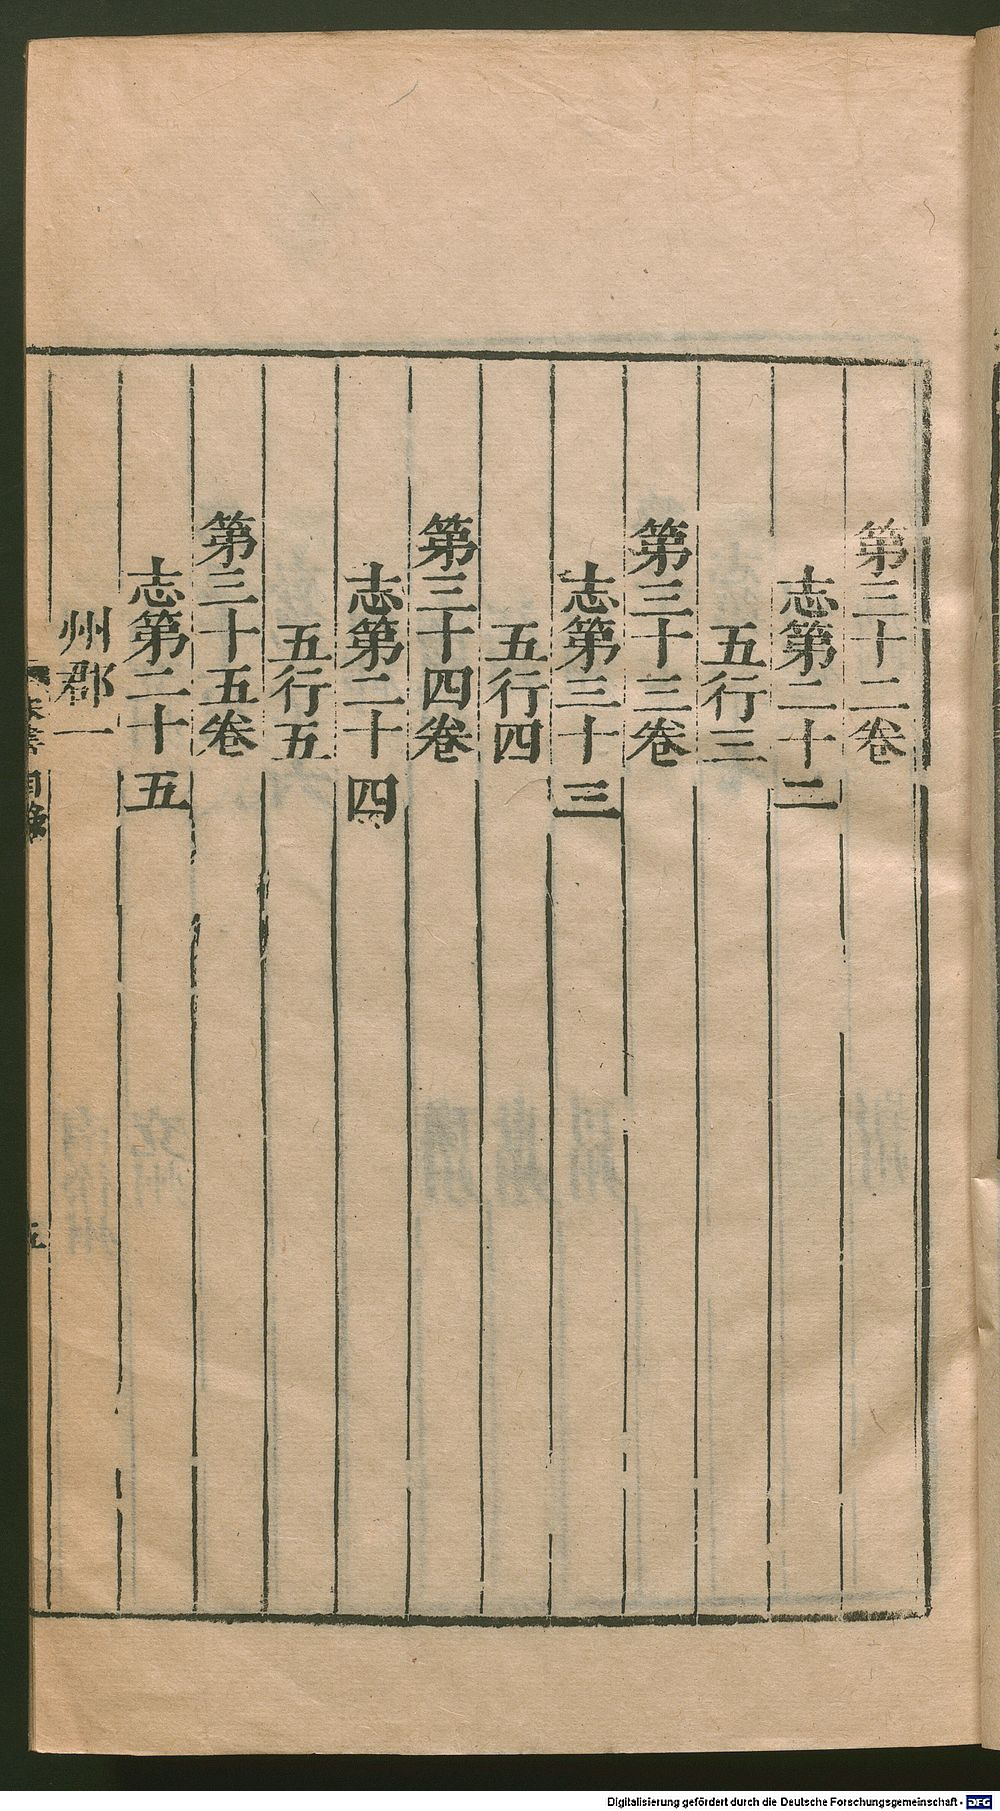 第三十二卷
志第二十二
五行三
第三十三卷
志第三十三
五行四
第三十四卷
志第二十四
五行五
第三十五卷
志第二十五
州郡一
Digitalisierung gefördert durch die Deutsche Forschungsgemeinschaft - DFG